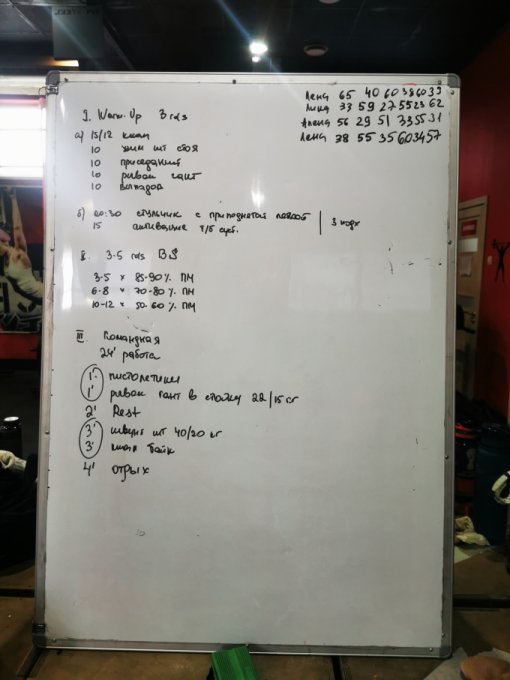 Лена 65 40 60 38 60 39
Лика 33 59 27 55 23 62
Алена 56 29 51 33 55 31
Лена 38 55 35 60 34 57
I. Warm-Up 3 rds
а) 15/12 ккал
10 жим шт стоя
10 приседаний
10 рывок гант
10 выпадов
б) 00:30 стульчик с приподнятой пяткой
15 т/б суст.
3 подх
II. 3-5 rds BS
3-5 × 85-90% ПМ
6-8 × 70-80% ПМ
10-12 × 50-60% ПМ
III. Командная
24' работа
1' пистолетики
1' рывок гант в стойку 22/15 кг
2' Rest
3' швунг шт 40/20 кг
3' ккал байк
4' отдых